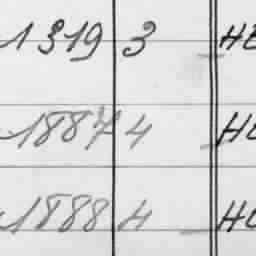 1319 3 HE
1887 4 HO
1888 4 HO